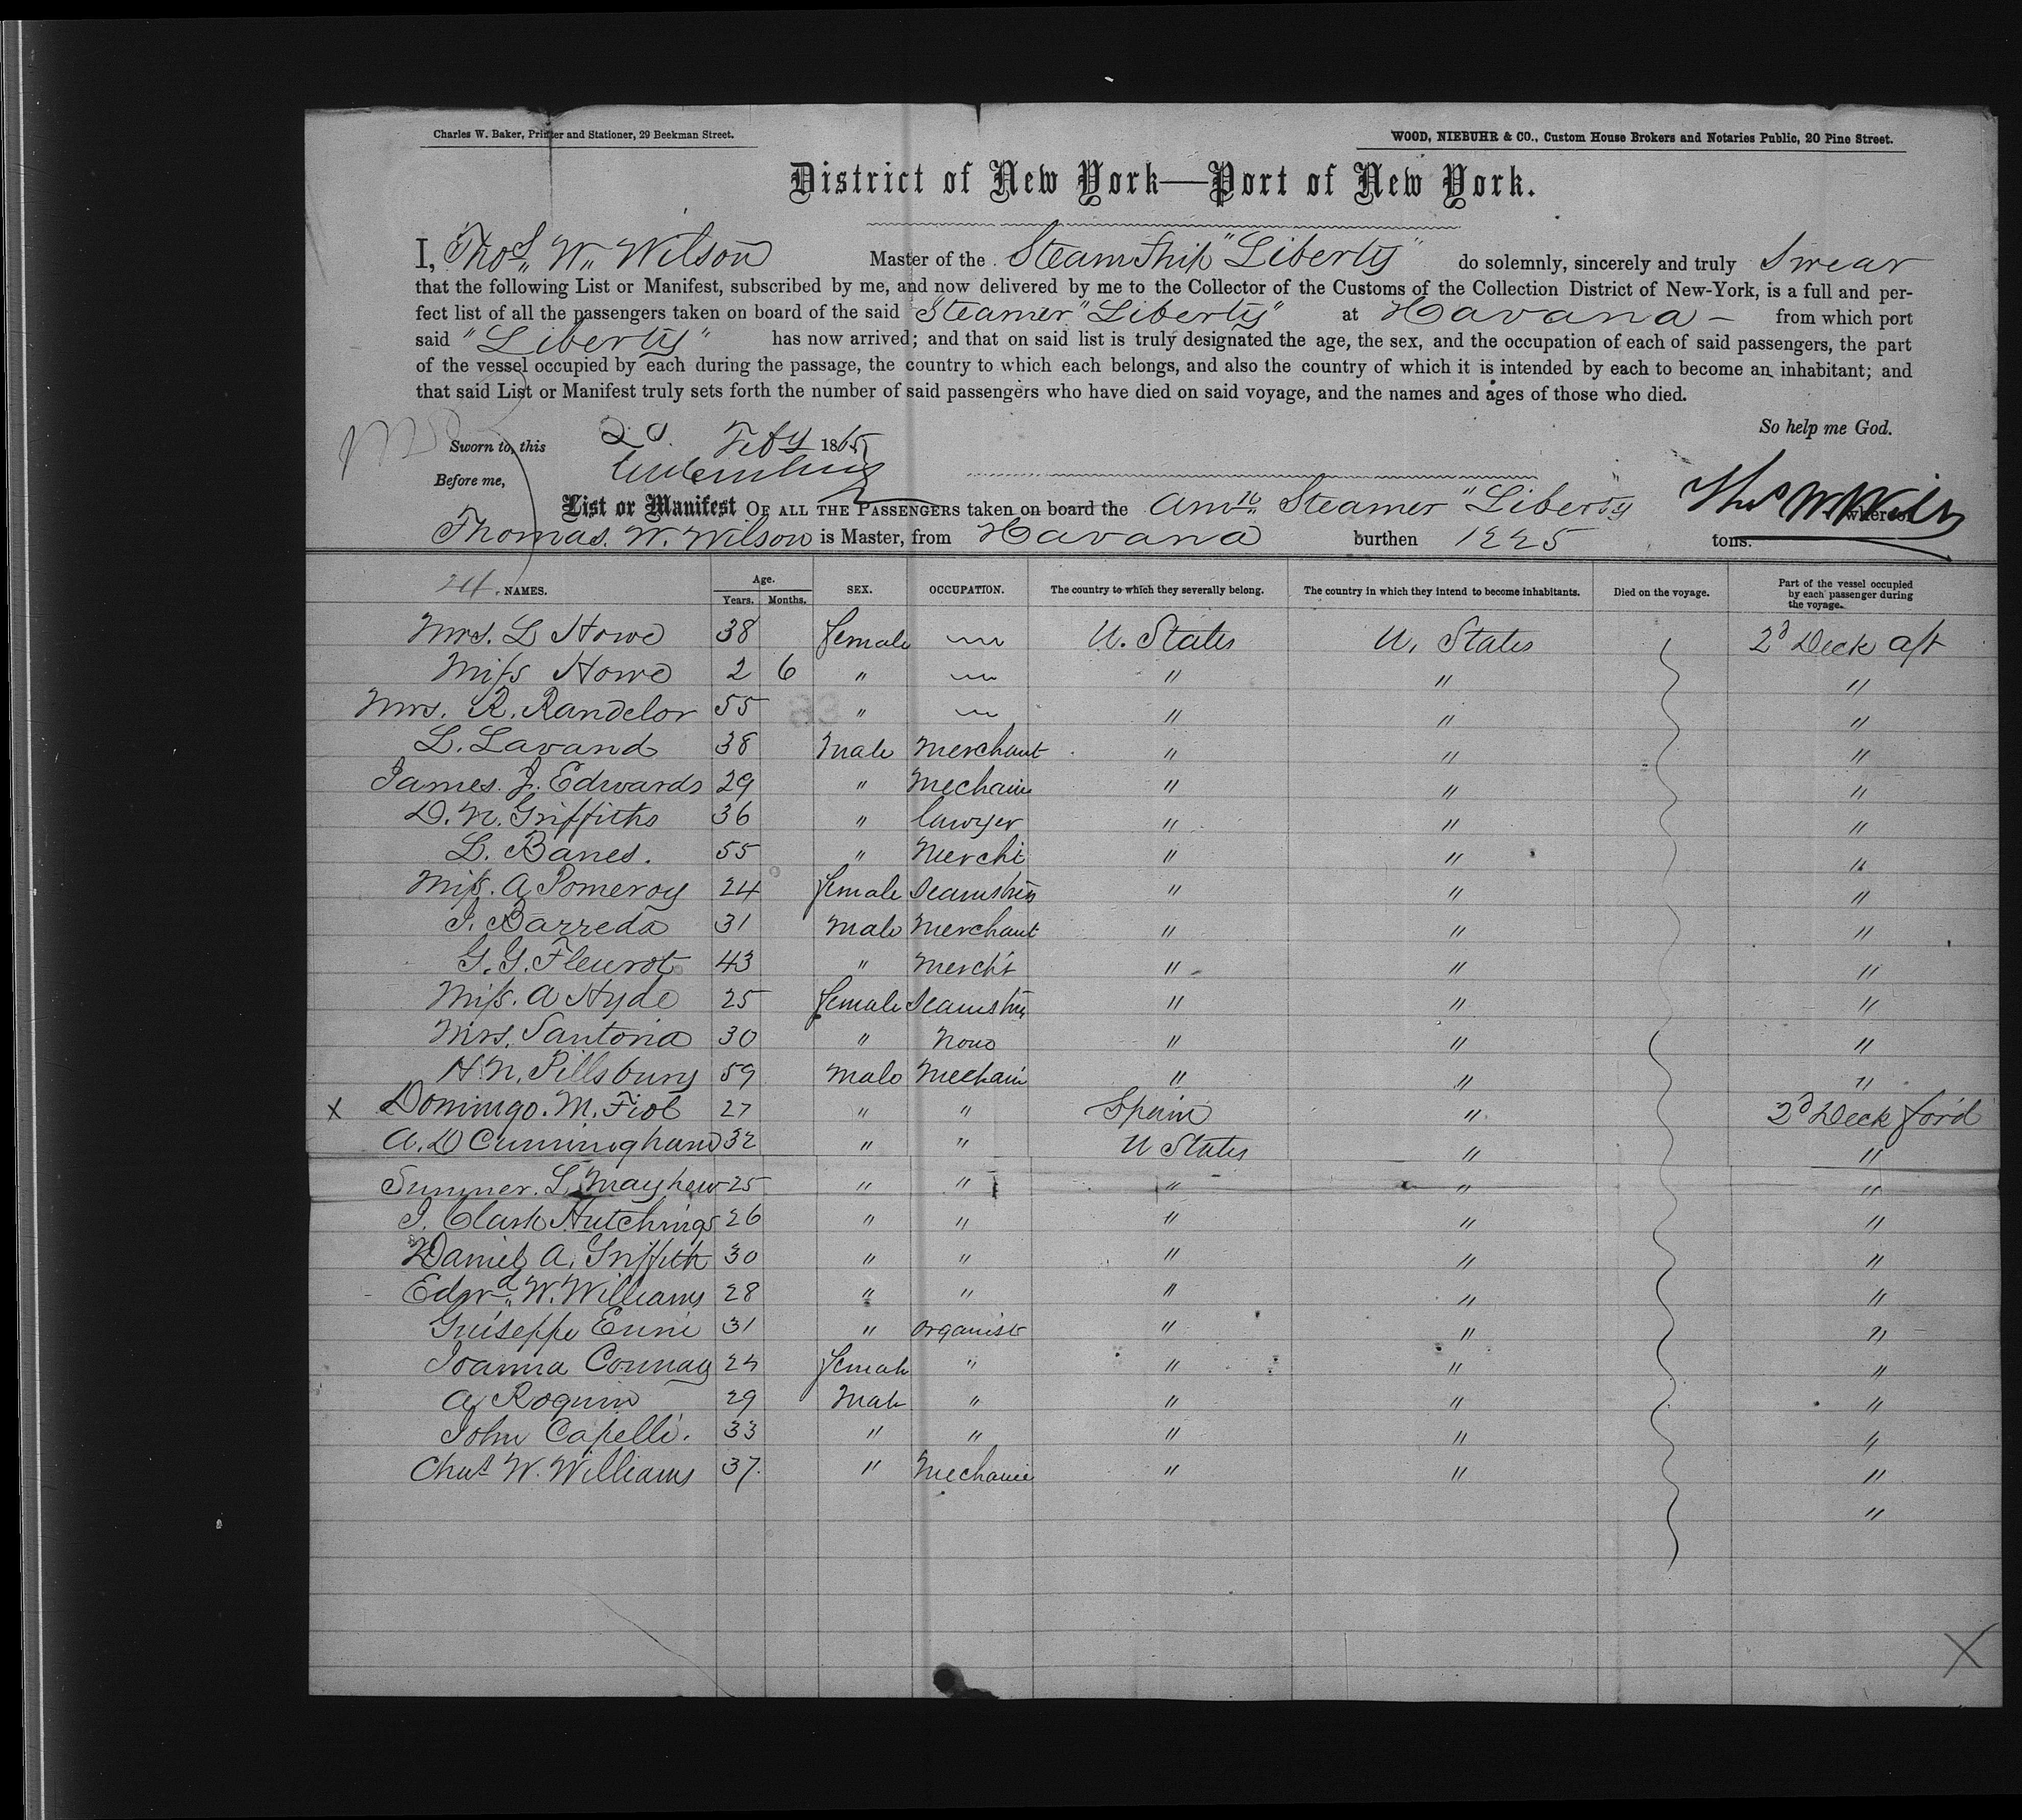 Charles W. Baker, Printer and Stationer, 29 Beekman Street.
WOOD, NIEBUHR & CO., Custom House Brokers and Notaries Public, 20 Pine Street.
District of New York—Port of New York.
I, Thos. W. Wilson Master of the Steam Ship "Liberty" do solemnly, sincerely and truly Swear
that the following List or Manifest, subscribed by me, and now delivered by me to the Collector of the Customs of the Collection District of New-York, is a full and per-
fect list of all the passengers taken on board of the said Steamer "Liberty" at Havana – from which port
said "Liberty" has now arrived; and that on said list is truly designated the age, the sex, and the occupation of each of said passengers, the part
of the vessel occupied by each during the passage, the country to which each belongs, and also the country of which it is intended by each to become an inhabitant; and
that said List or Manifest truly sets forth the number of said passengers who have died on said voyage, and the names and ages of those who died.
So help me God.
Sworn to, this Feby 1865
Before me,
List or Manifest OF ALL THE PASSENGERS taken on board the Amn. Steamer "Liberty whereof
Thos W Wilson
Thomas. W. Wilson is Master, from Havana burthen 1225 tons.
24. NAMES. Age. Years. Months. SEX. OCCUPATION. The country to which they severally belong. The country in which they intend to become inhabitants. Died on the voyage. Part of the vessel occupied by each passenger during the voyage.
Mrs. L Howe 38 female U. States U. States 2d Deck aft
Miss Howe 2 6 " " " "
Mrs. R. Randelor 55 " " " "
L. Lavand 38 Male Merchant " " "
James. J. Edwards 29 " Mechanic " " "
D. N. Griffiths 36 " lawyer " " "
L. Banes. 55 " Mercht " " "
Miss. A Pomeroy 24 female Seamstress " " "
J. Barreda 31 Male Merchant " " "
G. G. Fleurot 43 " Mercht " " "
Miss. A Hyde 25 female Seamstress " " "
Mrs. Santoria 30 " None " " "
H. N. Pillsbury 59 Male Mechanic " " "
x Domingo. M. Fiol 27 " " Spain " 2d Deck for'd
A. D Cunningham 32 " " U States " "
Sumner. L. Mayhew 25 " " " " "
J. Clark Hutchings 26 " " " " "
Daniel A. Griffith 30 " " " " "
Edwd. W. Williams 28 " " " " "
Guiseppe Enni 31 " organist " " "
Joanna Connay 24 female " " " "
A Roquin 29 Male " " " "
John Capelli. 33 " " " " "
Chas W. Williams 37. " Mechanic " " "
"
X